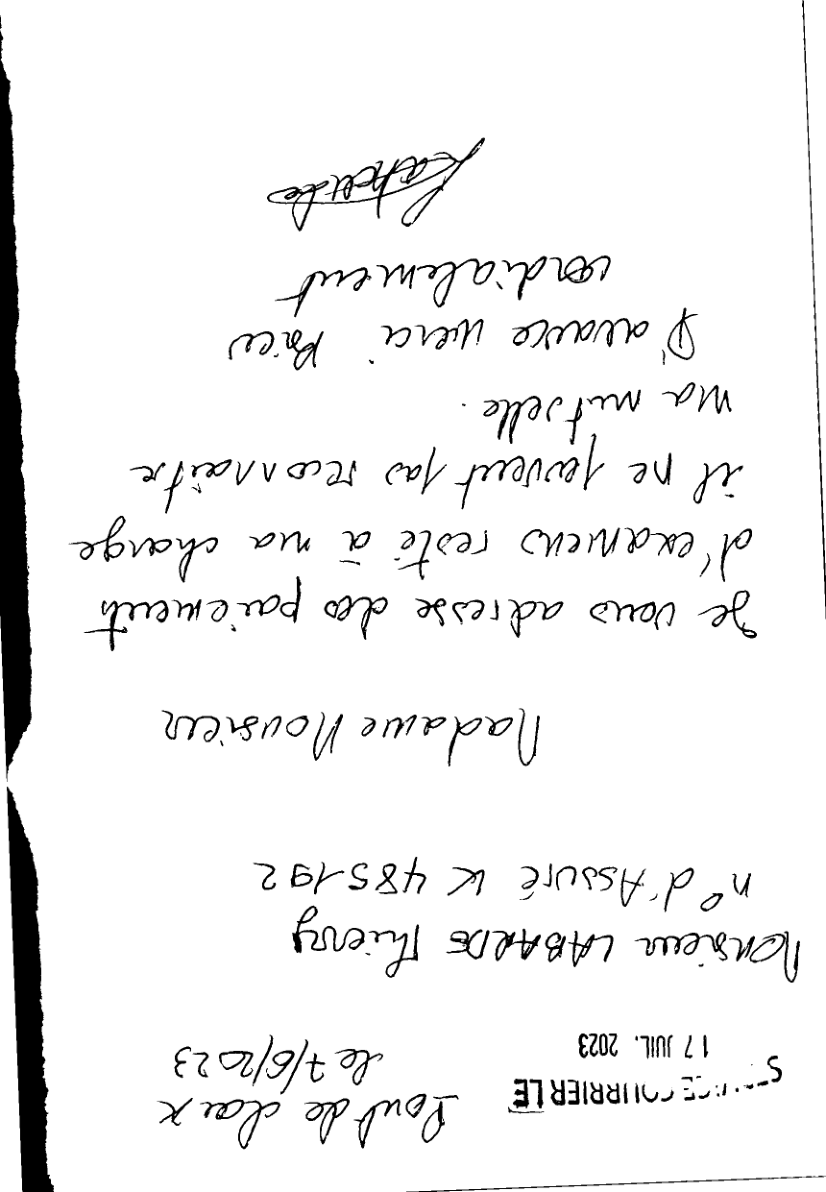 SERVICE COURRIER LE
17 JUIL. 2023
Pont de claix
le 7/6/2023
Monsieur LABARDE Thierry
n° d'Assuré K 485192
Madame Monsieur
Je vous adresse des paiements
d'examens resté à ma charge
il ne peuvent pas reconnaitre
ma mutuelle.
D'avance merci
cordialement